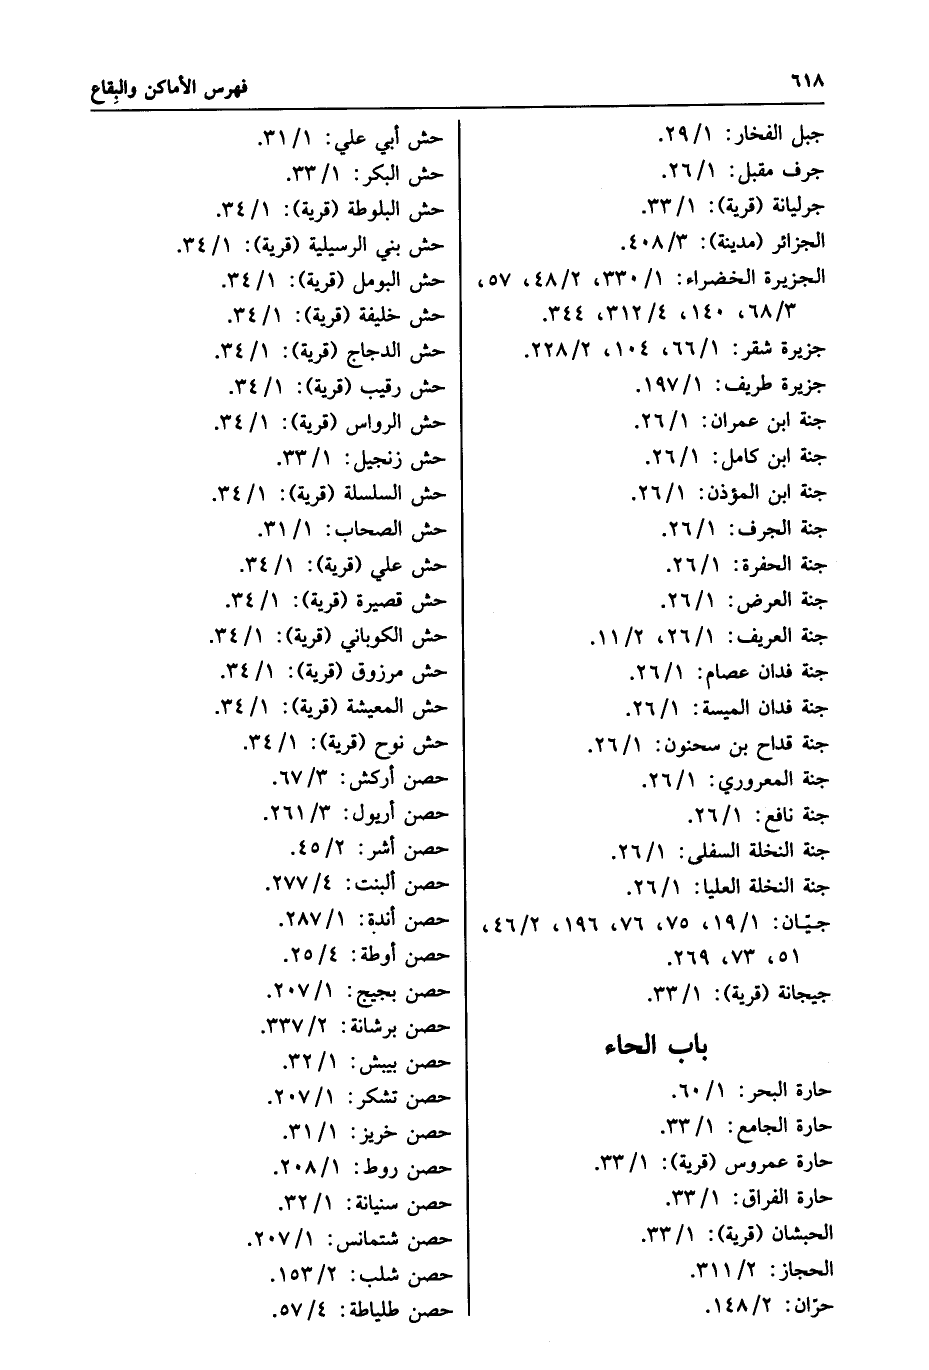 ٦١٨
فهرس الأماكن والبِقاع
جبل الفخار: ٢٩/١.
جرف مقبل: ٢٦/١.
جرليانة (قرية): ٣٣/١.
الجزائر (مدينة): ٤٠٨/٣.
الجزيرة الخضراء: ٣٣٠/١، ٤٨/٢، ٥٧،
٦٨/٣، ١٤٠، ٣١٢/٤، ٣٤٤.
جزيرة شقر: ٦٦/١، ١٠٤، ٢٢٨/٢.
جزيرة طريف: ١٩٧/١.
جنة ابن عمران: ٢٦/١.
جنة ابن كامل: ٢٦/١.
جنة ابن المؤذن: ٢٦/١.
جنة الجرف: ٢٦/١.
جنة الحفرة: ٢٦/١.
جنة العرض: ٢٦/١.
جنة العريف: ٢٦/١، ١١/٢.
جنة فدان عصام: ٢٦/١.
جنة فدان الميسة: ٢٦/١.
جنة قداح بن سحنون: ٢٦/١.
جنة المعروري: ٢٦/١.
جنة نافع: ٢٦/١.
جنة النخلة السفلى: ٢٦/١.
جنة النخلة العليا: ٢٦/١.
جيّان: ١٩/١، ٧٥، ٧٦، ١٩٦، ٤٦/٢،
٥١، ٧٣، ٢٦٩.
جيجانة (قرية): ٣٣/١.
باب الحاء
حارة البحر: ٦٠/١.
حارة الجامع: ٣٣/١.
حارة عمروس (قرية): ٣٣/١.
حارة الفراق: ٣٣/١.
الحبشان (قرية): ٣٣/١.
الحجاز: ٣١١/٢.
حرّان: ١٤٨/٢.
حش أبي علي: ٣١/١.
حش البكر: ٣٣/١.
حش البلوطة (قرية): ٣٤/١.
حش بني الرسيلية (قرية): ٣٤/١.
حش البومل (قرية): ٣٤/١.
حش خليفة (قرية): ٣٤/١.
حش الدجاج (قرية): ٣٤/١.
حش رقيب (قرية): ٣٤/١.
حش الرواس (قرية): ٣٤/١.
حش زنجيل: ٣٣/١.
حش السلسلة (قرية): ٣٤/١.
حش الصحاب: ٣١/١.
حش علي (قرية): ٣٤/١.
حش قصيرة (قرية): ٣٤/١.
حش الكوباني (قرية): ٣٤/١.
حش مرزوق (قرية): ٣٤/١.
حش المعيشة (قرية): ٣٤/١.
حش نوح (قرية): ٣٤/١.
حصن أركش: ٦٧/٣.
حصن أريول: ٢٦١/٣.
حصن أشر: ٤٥/٢.
حصن ألبنت: ٢٧٧/٤.
حصن أندة: ٢٨٧/١.
حصن أوطة: ٢٥/٤.
حصن بجيج: ٢٠٧/١.
حصن برشانة: ٣٣٧/٢.
حصن بيبش: ٣٢/١.
حصن تشكر: ٢٠٧/١.
حصن خريز: ٣١/١.
حصن روط: ٢٠٨/١.
حصن سنيانة: ٣٢/١.
حصن شتمانس: ٢٠٧/١.
حصن شلب: ١٥٣/٢.
حصن طلياطة: ٥٧/٤.